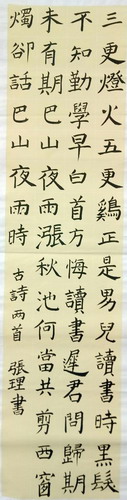 三更燈火五更鷄正是男兒讀書時黑髮
不知勤學早白首方悔讀書遲君問歸期
未有期巴山夜雨漲秋池何當共剪西窗
燭卻話巴山夜雨時
古詩兩首 張理書